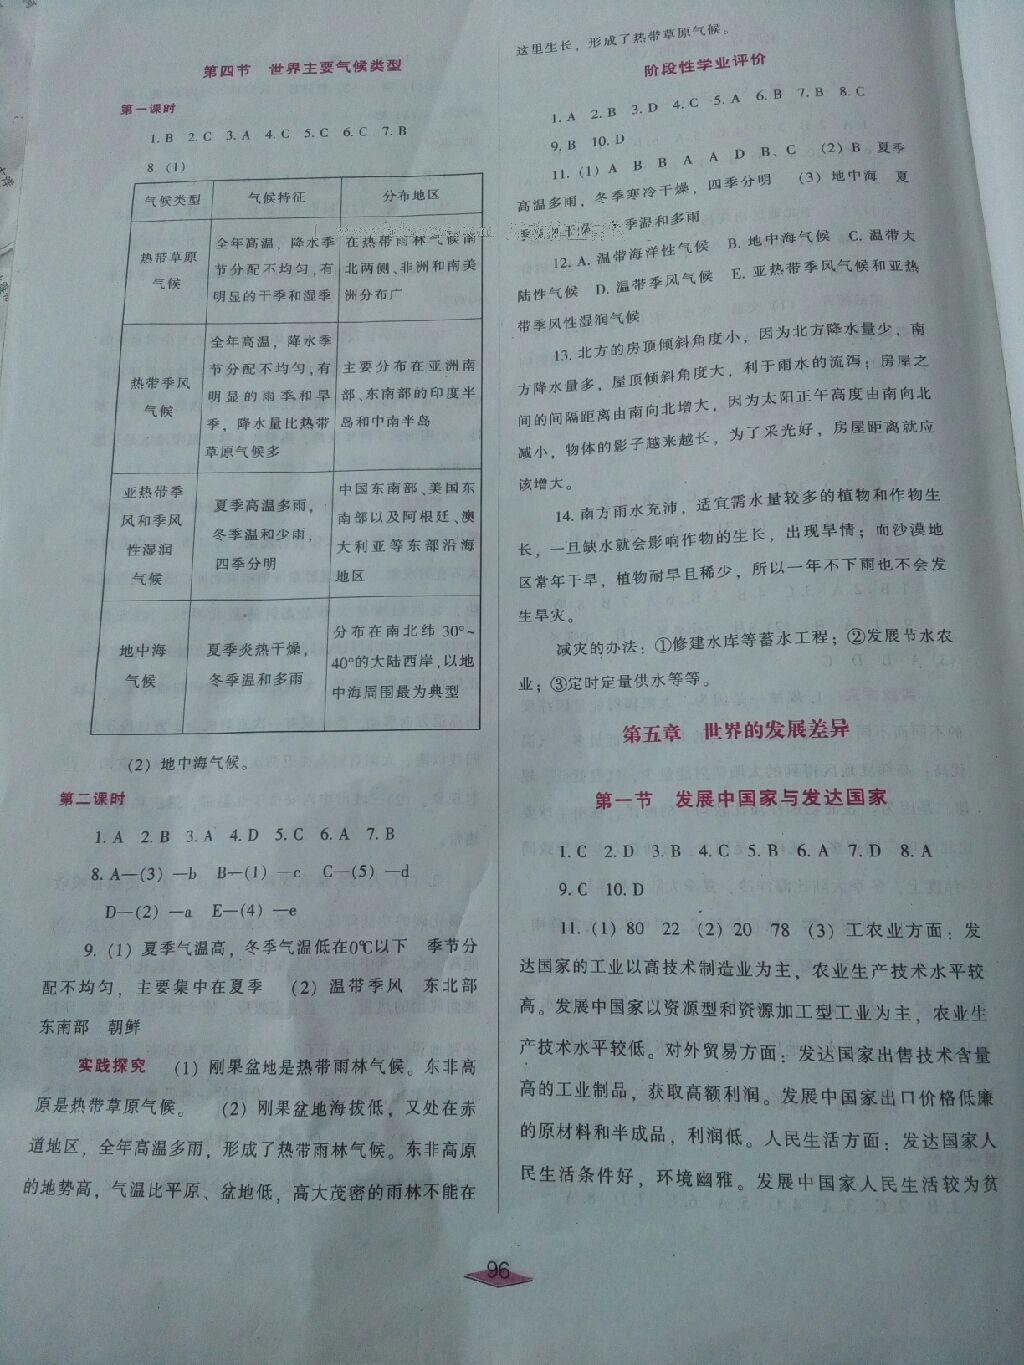 第四节 世界主要气候类型
第一课时
1. B 2. C 3. A 4. C 5. C 6. C 7. B
8. (1)
气候类型 气候特征 分布地区
热带草原
气候
全年高温，降水季
节分配不均匀，有
明显的干季和湿季
在热带雨林气候南
北两侧、非洲和南美
洲分布广
热带季风
气候
全年高温，降水季
节分配不均匀，有
明显的雨季和旱
季，降水量比热带
草原气候多
主要分布在亚洲南
部、东南部的印度半
岛和中南半岛
亚热带季
风和季风
性湿润
气候
夏季高温多雨，
冬季温和少雨，
四季分明
中国东南部、美国东
南部以及阿根廷、澳
大利亚等东部沿海
地区
地中海
气候
夏季炎热干燥，
冬季温和多雨
分布在南北纬 30°~
40°的大陆西岸，以地
中海周围最为典型
(2) 地中海气候。
第二课时
1. A 2. B 3. A 4. D 5. C 6. A 7. B
8. A—(3) —b B—(1) —c C—(5) —d
D—(2) —a E—(4) —e
9. (1) 夏季气温高，冬季气温低在0℃以下 季节分
配不均匀，主要集中在夏季 (2) 温带季风 东北部
东南部 朝鲜
实践探究 (1) 刚果盆地是热带雨林气候。东非高
原是热带草原气候。 (2) 刚果盆地海拔低，又处在赤
道地区，全年高温多雨，形成了热带雨林气候。东非高原
的地势高，气温比平原、盆地低，高大茂密的雨林不能在
这里生长，形成了热带草原气候。
阶段性学业评价
1. A 2. B 3. D 4. C 5. A 6. B 7. B 8. C
9. B 10. D
11. (1) A B B A A D B、C (2) B 夏季
高温多雨，冬季寒冷干燥，四季分明 (3) 地中海 夏
季温和多雨
12. A. 温带海洋性气候 B. 地中海气候 C. 温带大
陆性气候 D. 温带季风气候 E. 亚热带季风气候和亚热
带季风性湿润气候
13. 北方的房顶倾斜角度小，因为北方降水量少，南
方降水量多，屋顶倾斜角度大，利于雨水的流泻；房屋之
间的间隔距离由南向北增大，因为太阳正午高度由南向北
减小，物体的影子越来越长，为了采光好，房屋距离就应
该增大。
14. 南方雨水充沛，适宜需水量较多的植物和作物生
长，一旦缺水就会影响作物的生长，出现旱情；而沙漠地
区常年干旱，植物耐旱且稀少，所以一年不下雨也不会发
生旱灾。
减灾的办法：①修建水库等蓄水工程；②发展节水农
业；③定时定量供水等等。
第五章 世界的发展差异
第一节 发展中国家与发达国家
1. C 2. D 3. B 4. C 5. B 6. A 7. D 8. A
9. C 10. D
11. (1) 80 22 (2) 20 78 (3) 工农业方面：发
达国家的工业以高技术制造业为主，农业生产技术水平较
高。发展中国家以资源型和资源加工型工业为主，农业生
产技术水平较低。对外贸易方面：发达国家出售技术含量
高的工业制品，获取高额利润。发展中国家出口价格低廉
的原材料和半成品，利润低。人民生活方面：发达国家人
民生活条件好，环境幽雅。发展中国家人民生活较为贫
96